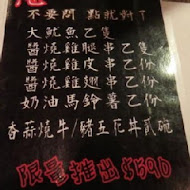 不要問 點就對了
大魷魚乙隻
醬燒雞腿串乙份
醬燒雞皮串乙份
醬燒雞翅串乙份
奶油馬鈴薯乙份
香蒜燒牛/豬五花丼貳碗
限量推出$590